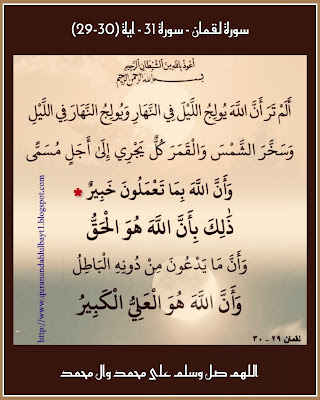 سورة لقمان - سورة 31 - اية (30-29)
أعوذ بالله من الشيطان الرجيم
بسم الله الرحمن الرحيم
أَلَمْ تَرَ أَنَّ اللَّهَ يُولِجُ اللَّيْلَ فِي النَّهَارِ وَيُولِجُ النَّهَارَ فِي اللَّيْلِ
وَسَخَّرَ الشَّمْسَ وَالْقَمَرَ كُلٌّ يَجْرِي إِلَىٰ أَجَلٍ مُسَمًّى
وَأَنَّ اللَّهَ بِمَا تَعْمَلُونَ خَبِيرٌ *
ذَٰلِكَ بِأَنَّ اللَّهَ هُوَ الْحَقُّ
وَأَنَّ مَا يَدْعُونَ مِنْ دُونِهِ الْبَاطِلُ
وَأَنَّ اللَّهَ هُوَ الْعَلِيُّ الْكَبِيرُ
لقمان ٢٩ - ٣٠
http://www.quranandahlulbayt1.blogspot.com
اللهم صل وسلم على محمد وال محمد